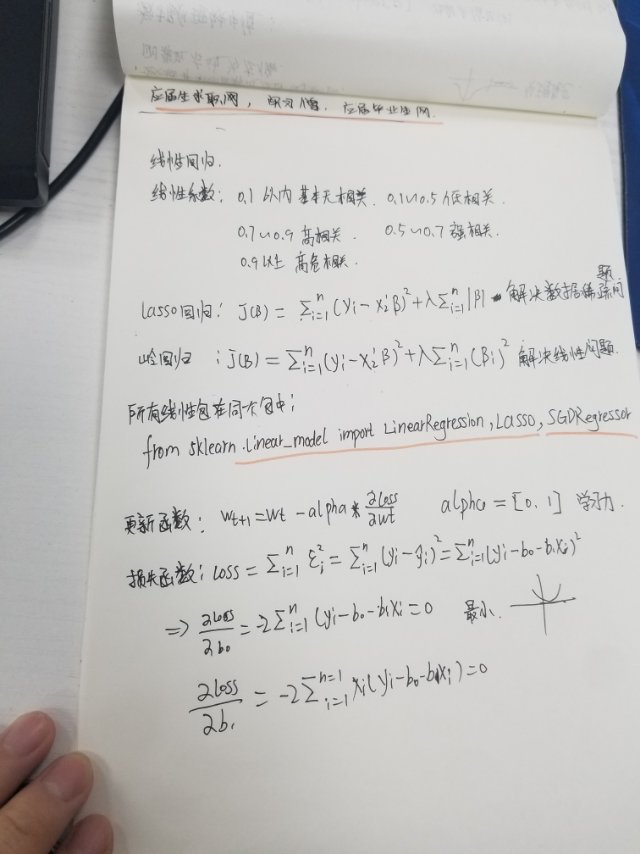 应届生求职网, 实习僧, 应届毕业生网.
线性回归.
线性系数: 0.1 以内 基本无相关. 0.1~0.5 低相关.
0.7~0.9 高相关. 0.5~0.7 强相关.
0.9以上 高危相关.
Lasso回归: J(β) = Σⁿᵢ₌₁(yᵢ-xᵢ'β)²+λΣⁿᵢ₌₁|β| 解决数据稀疏问题
岭回归: J(β)=Σⁿᵢ₌₁(yᵢ-xᵢ'β)²+λΣⁿᵢ₌₁(βᵢ)² 解决线性问题.
所有线性包在同一个包中:
from sklearn.linear_model import LinearRegression, Lasso, SGDRegressor
更新函数: Wt+1=Wt-alpha*∂Loss/∂wt alpha=[0.1] 学习力
损失函数: Loss=Σⁿᵢ₌₁εᵢ²=Σⁿᵢ₌₁(yᵢ-ŷᵢ)²=Σⁿᵢ₌₁(yᵢ-b₀-b₁xᵢ)²
=> ∂Loss/∂b₀=-2Σⁿᵢ₌₁(yᵢ-b₀-b₁xᵢ=0 最小.
∂Loss/∂b₁=-2Σⁿ⁼¹ᵢ₌₁xᵢ(yᵢ-b₀-b₁xᵢ)=0